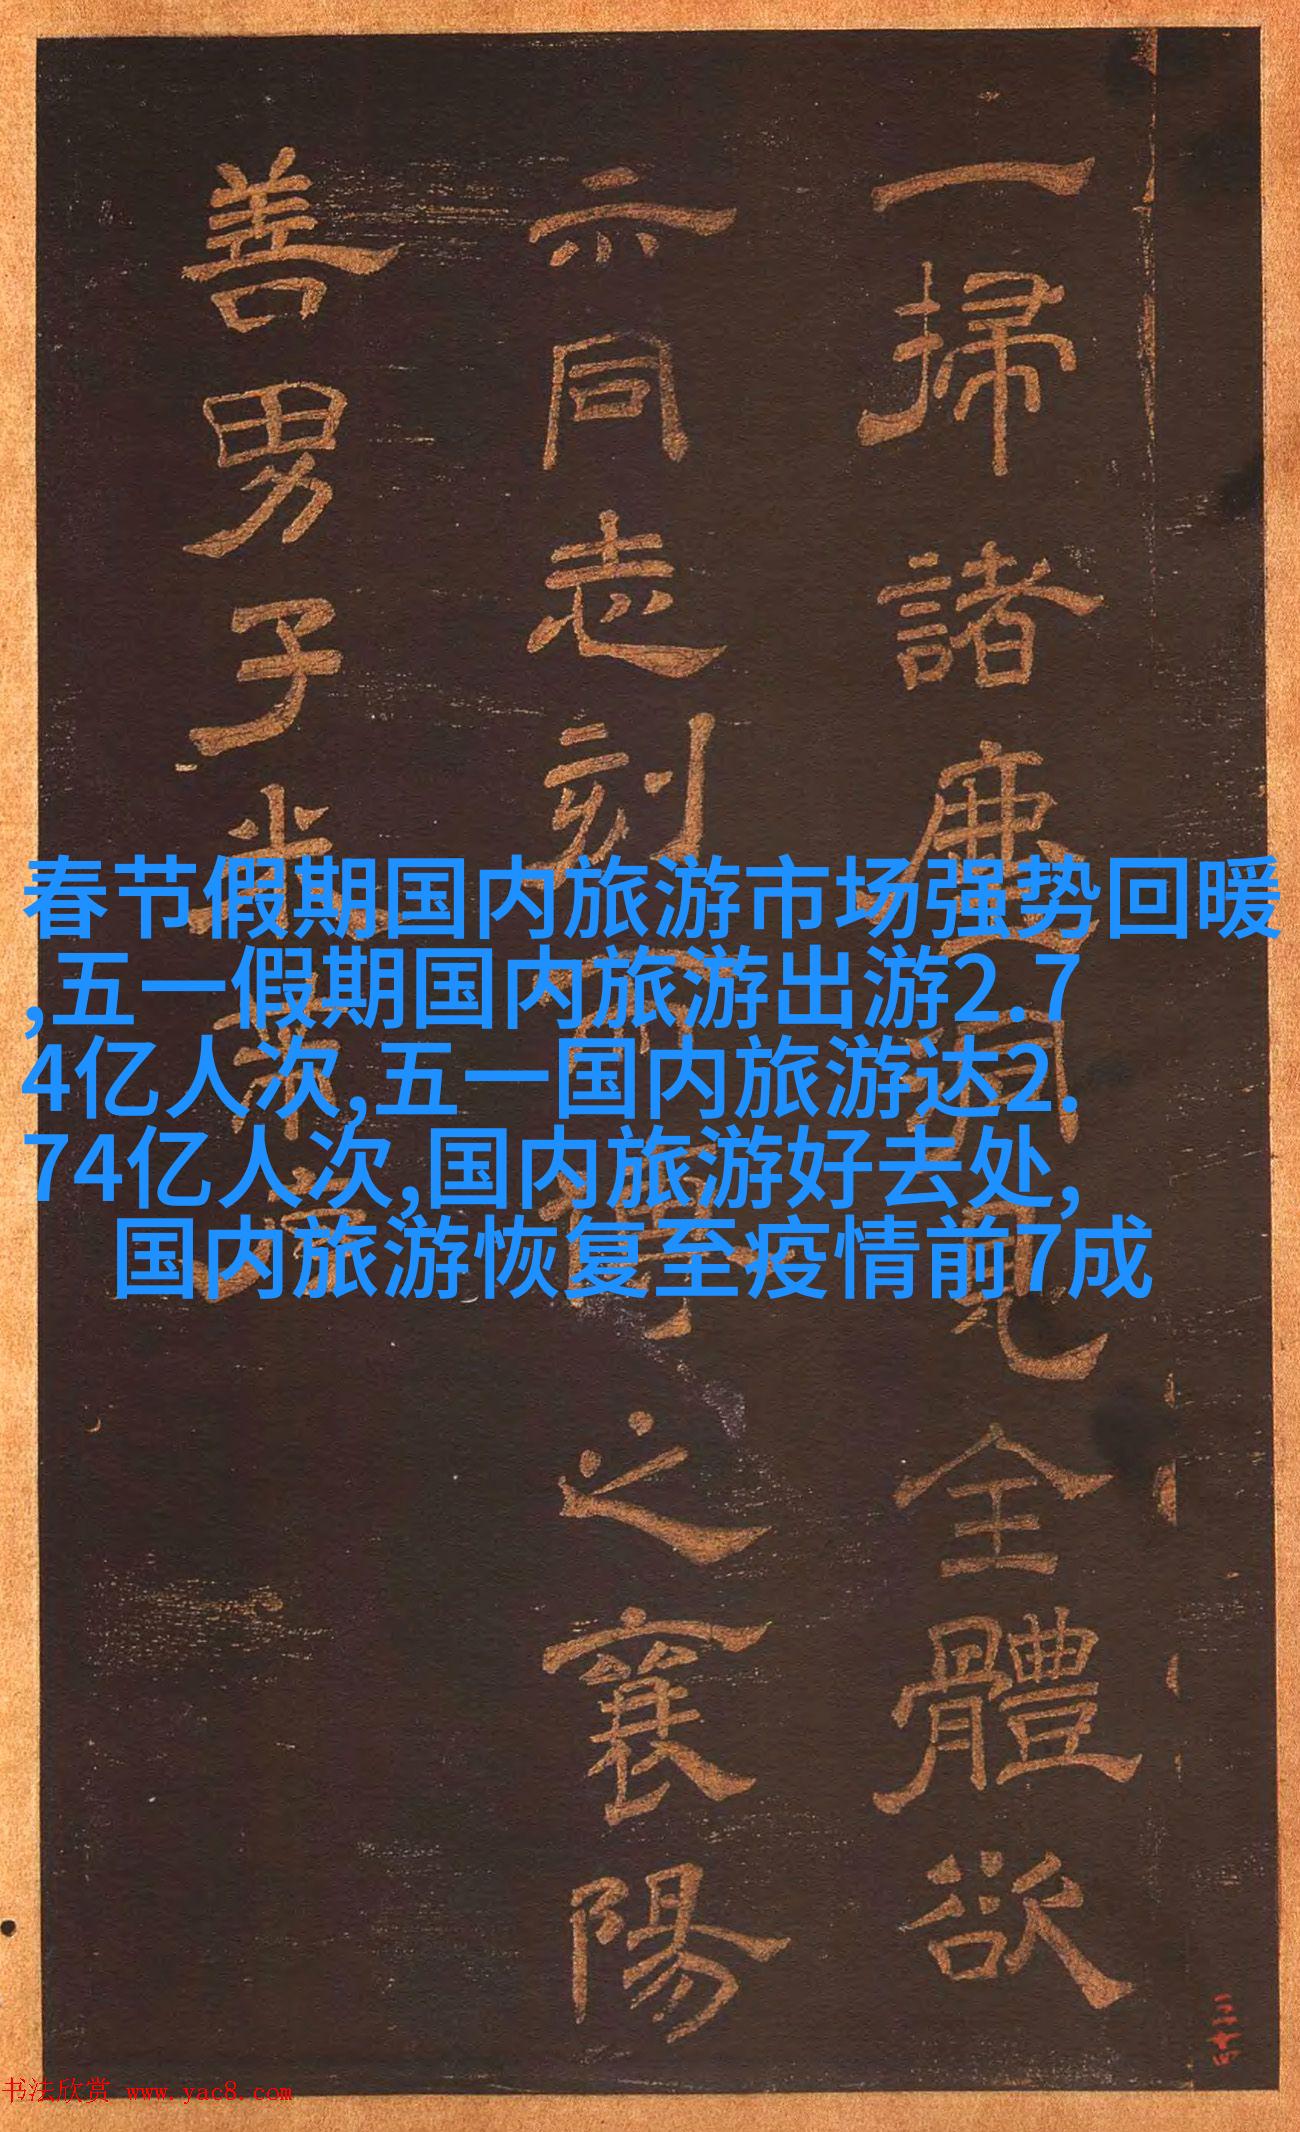 一掃諸塵洞見全體欲
示同志刻而傳之襄陽
善男子
春节假期国内旅游市场强势回暖
,五一假期国内旅游出游2.7
4亿人次,五一国内旅游达2.
74亿人次,国内旅游好去处,
国内旅游恢复至疫情前7成
三十四
书法欣赏 www.yac8.com